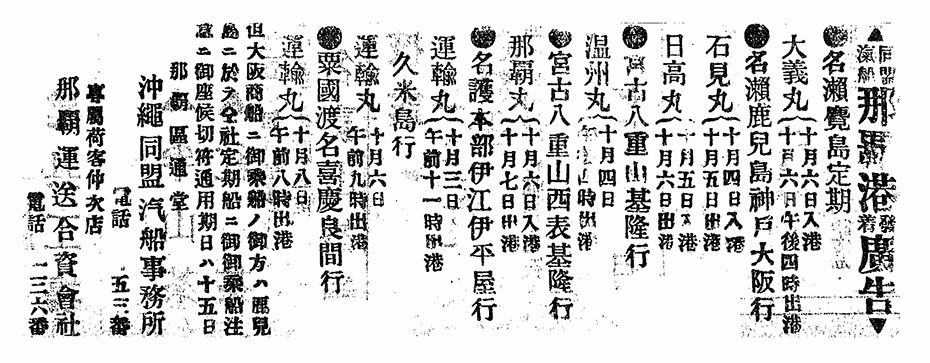 ▲同盟汽船那覇港發着廣告▼
●名瀨鹿島定期
大義丸 十月六日入港
十月六日午後四時出港
●名瀨鹿兒島神戸大阪行
石見丸 十月四日入港
十月五日出港
日高丸 十月五日入港
十月六日出港
●宮古八重山基隆行
温州丸 十月四日
時出港
●宮古八重山西表基隆行
那覇丸 十月六日入港
十月七日出港
●名護本部伊江伊平屋行
運輸丸 十月三日
午前十一時出港
久米島行
運輸丸 十月六日
午前九時出港
●粟國渡名喜慶良間行
運輸丸 十月八日
午前八時出港
但大阪商船ニ御乘船ノ御方ハ鹿兒
島ニ於テ仝社定期船ニ御乘船注
意ニ御座候切符通用期日ハ十五日
那覇區通堂
沖繩同盟汽船事務所
電話 五三番
專屬荷客仲次店
那覇運送合資會社
電話 二三六番